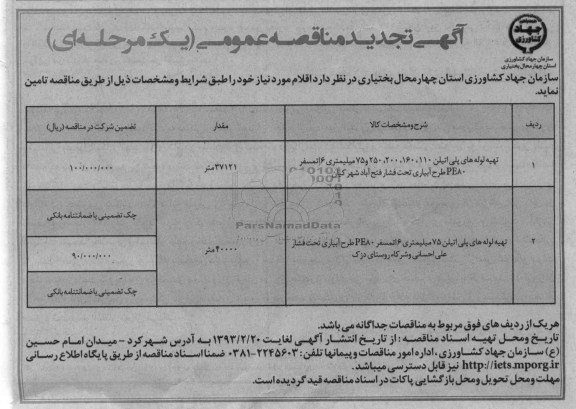 آگهی تجدید مناقصه عمومی (یک مرحله‌ای)
جهاد کشاورزی
سازمان جهاد کشاورزی
استان چهارمحال بختیاری
سازمان جهاد کشاورزی استان چهارمحال بختیاری در نظر دارد اقلام مورد نیاز خود را طبق شرایط و مشخصات ذیل از طریق مناقصه تامین
نماید.
ردیف شرح و مشخصات کالا مقدار تضمین شرکت در مناقصه (ریال)
۱ تهیه لوله های پلی اتیلن ۱۱۰، ۱۶۰، ۲۰۰، ۲۵۰ و ۷۵ میلیمتری ۶ اتمسفر
PE۸۰ طرح آبیاری تحت فشار فتح آباد شهر کیان
۳۷۱۲۱ متر
۱۰۰/۰۰۰/۰۰۰
چک تضمینی یا ضمانتنامه بانکی
۲ تهیه لوله های پلی اتیلن ۷۵ میلیمتری ۶ اتمسفر PE۸۰ طرح آبیاری تحت فشار
علی احسانی و شرکاء روستای دزک
۴۰۰۰۰ متر
۹۰/۰۰۰/۰۰۰
چک تضمینی یا ضمانتنامه بانکی
ParsNamadData
هر یک از ردیف های فوق مربوط به مناقصات جداگانه می باشد.
تاریخ و محل تهیه اسناد مناقصه : از تاریخ انتشار آگهی لغایت ۱۳۹۳/۲/۲۰ به آدرس شهرکرد - میدان امام حسین
(ع) سازمان جهاد کشاورزی ، اداره امور مناقصات و پیمانها تلفن : ۲۲۴۵۶۰۳-۰۳۸۱ ضمنا اسناد مناقصه از طریق پایگاه اطلاع رسانی
http://iets.mporg.ir نیز قابل دسترسی میباشد.
مهلت و محل تحویل و محل بازگشایی پاکات در اسناد مناقصه قید گردیده است.